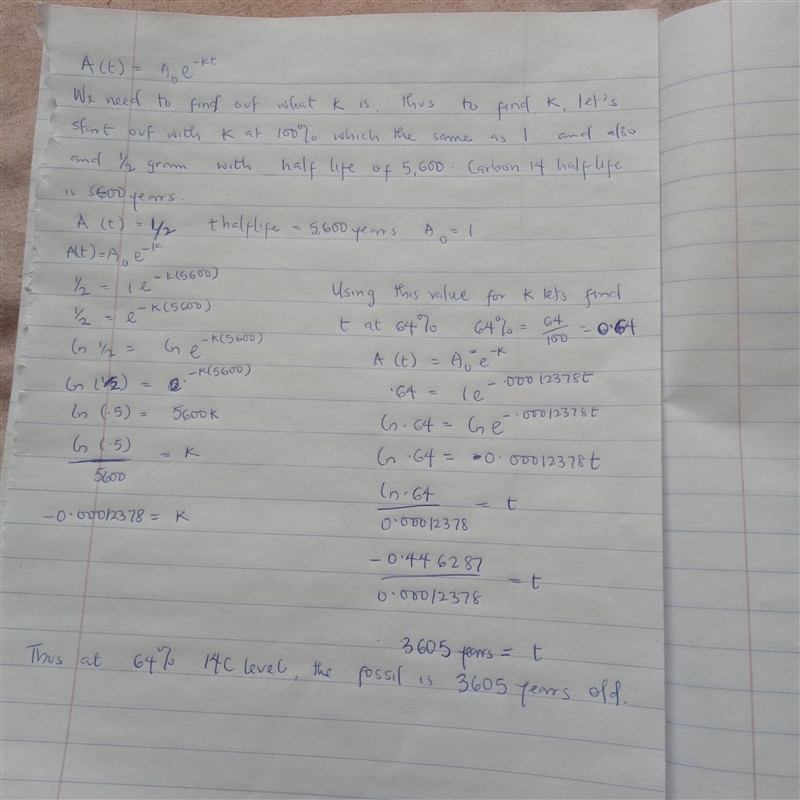 A(t) = A₀e^-kt
We need to find out what K is. Thus to find K, let's
start out with K at 100% which the same as 1 and also
and 1/2 gram with half life of 5,600. Carbon 14 half life
is 5600 years.
A (t) = 1/2 t half life = 5,600 years A₀ = 1
A(t) = A₀e^-k
1/2 = 1e^-k(5600)
1/2 = e^-k(5600)
Ln 1/2 = Ln e^-k(5600)
Ln (1/2) = e^-k(5600)
Ln (.5) = 5600K
Ln (.5) / 5600 = K
-0.00012378 = K
Using this value for K lets find
t at 64% 64% = 64/100 = 0.64
A (t) = A₀e^-k
.64 = 1e^-.00012378t
Ln .64 = Ln e^-.00012378t
Ln .64 = -0.00012378t
Ln .64 / 0.00012378 = t
-0.446287 / 0.00012378 = t
3605 years = t
Thus at 64% 14C level, the fossil is 3605 years old.